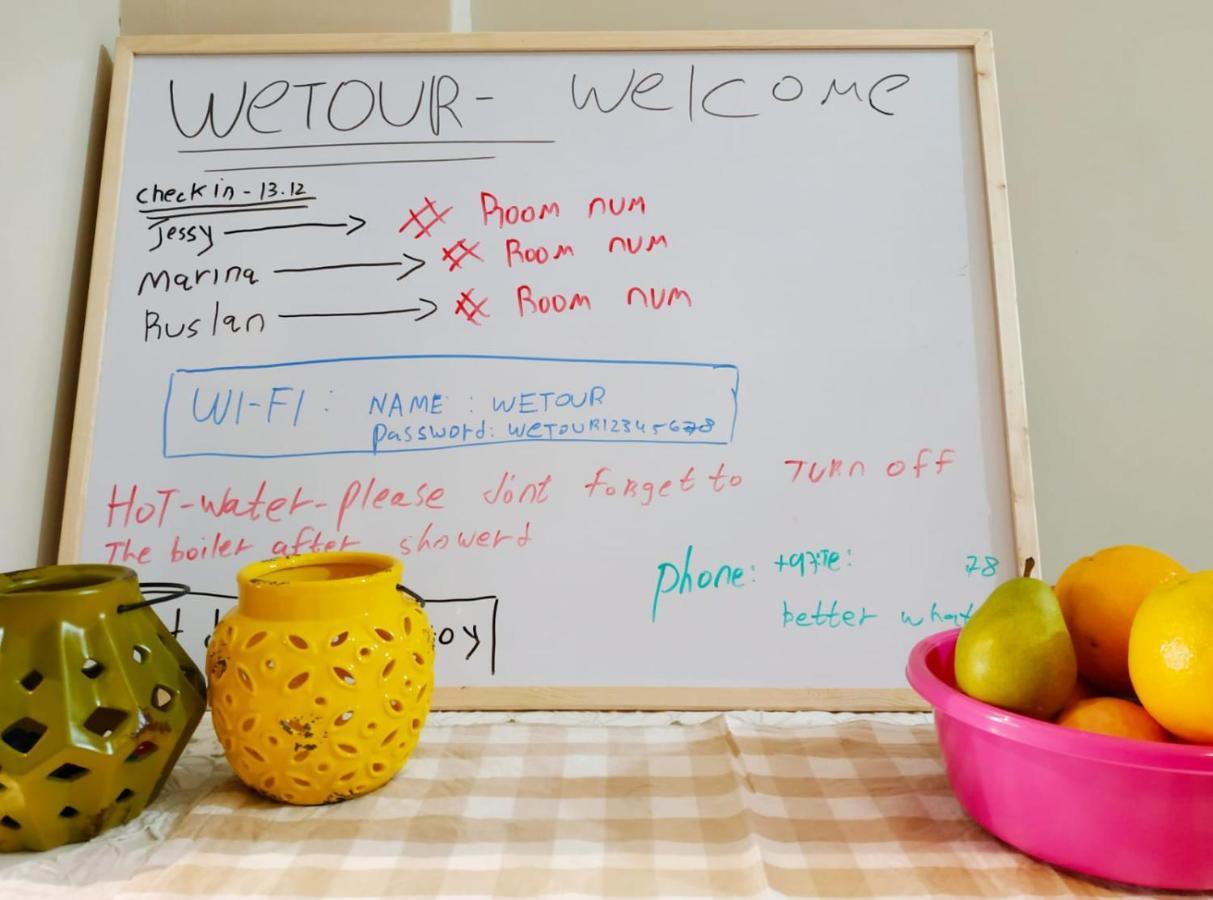 WeTOUR- Welcome
Check in - 13.12
Jessy → # Room num
Marina → # Room num
Ruslan → # Room num
WI-FI : NAME : WETOUR
Password: WeTOUR12345678
HOT-Water-please don't forget to TURN off
The boiler after showerd
phone: 78
better